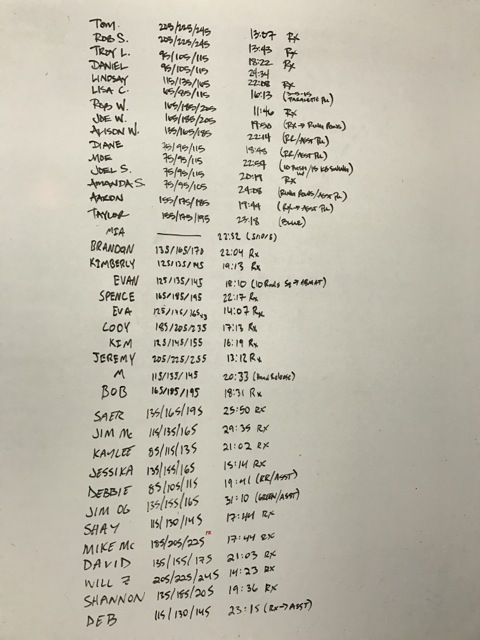 TOM. 225/225/245 13:07 RX
ROB S. 205/225/245 13:43 RX
TROY L. 95/105/115 18:22 RX
DANIEL 95/105/115 24:34
LINDSAY 115/135/165 22:08 RX
LISA C. 65/85/115 16:13
ROB W. 165/185/205 11:46 RX
JOE W. 165/185/205 19:50 (RX→RING ROWS)
ALISON W. 155/165/185 22:14 (RR/ASST PU)
DIANE 75/95/115 18:45 (RR/ASST PU)
MOE 75/95/115 22:54
JOEL S. 75/95/115 20:19 RX
AMANDA S. 75/95/105 24:08 (RING ROWS/ASST PU)
AARON 155/175/185 19:44 (RX→ASST PU)
TAYLOR 155/175/195 23:18 (BLUE)
MIA ——— 22:52
BRANDON 135/165/170 22:04 RX
KIMBERLY 125/135/145 19:13 RX
EVAN 125/135/145 18:10
SPENCE 165/185/195 22:17 RX
EVA 125/145/165x3 14:07 RX
CODY 185/205/235 17:13 RX
KIM 125/145/155 16:19 RX
JEREMY 205/225/255 13:12 RX
M 115/135/145 20:33 (Hand Release)
BOB 165/185/195 18:31 RX
SAER 135/165/195 25:50 RX
JIM Mc 115/135/165 29:35 RX
KAYLEE 85/115/135 21:02 RX
JESSIKA 135/155/165 15:14 RX
DEBBIE 85/105/115 19:41 (RR/ASST)
JIM OG 135/155/165 31:10 (GREEN/ASST)
SHAY 115/130/145 17:44 RX
MIKE MC 185/205/225 PR 17:44 RX
DAVID 135/155/175 21:03 RX
WILL Z 205/225/245 14:23 RX
SHANNON 135/185/205 19:36 RX
DEB 115/130/145 23:15 (RX→ASST)